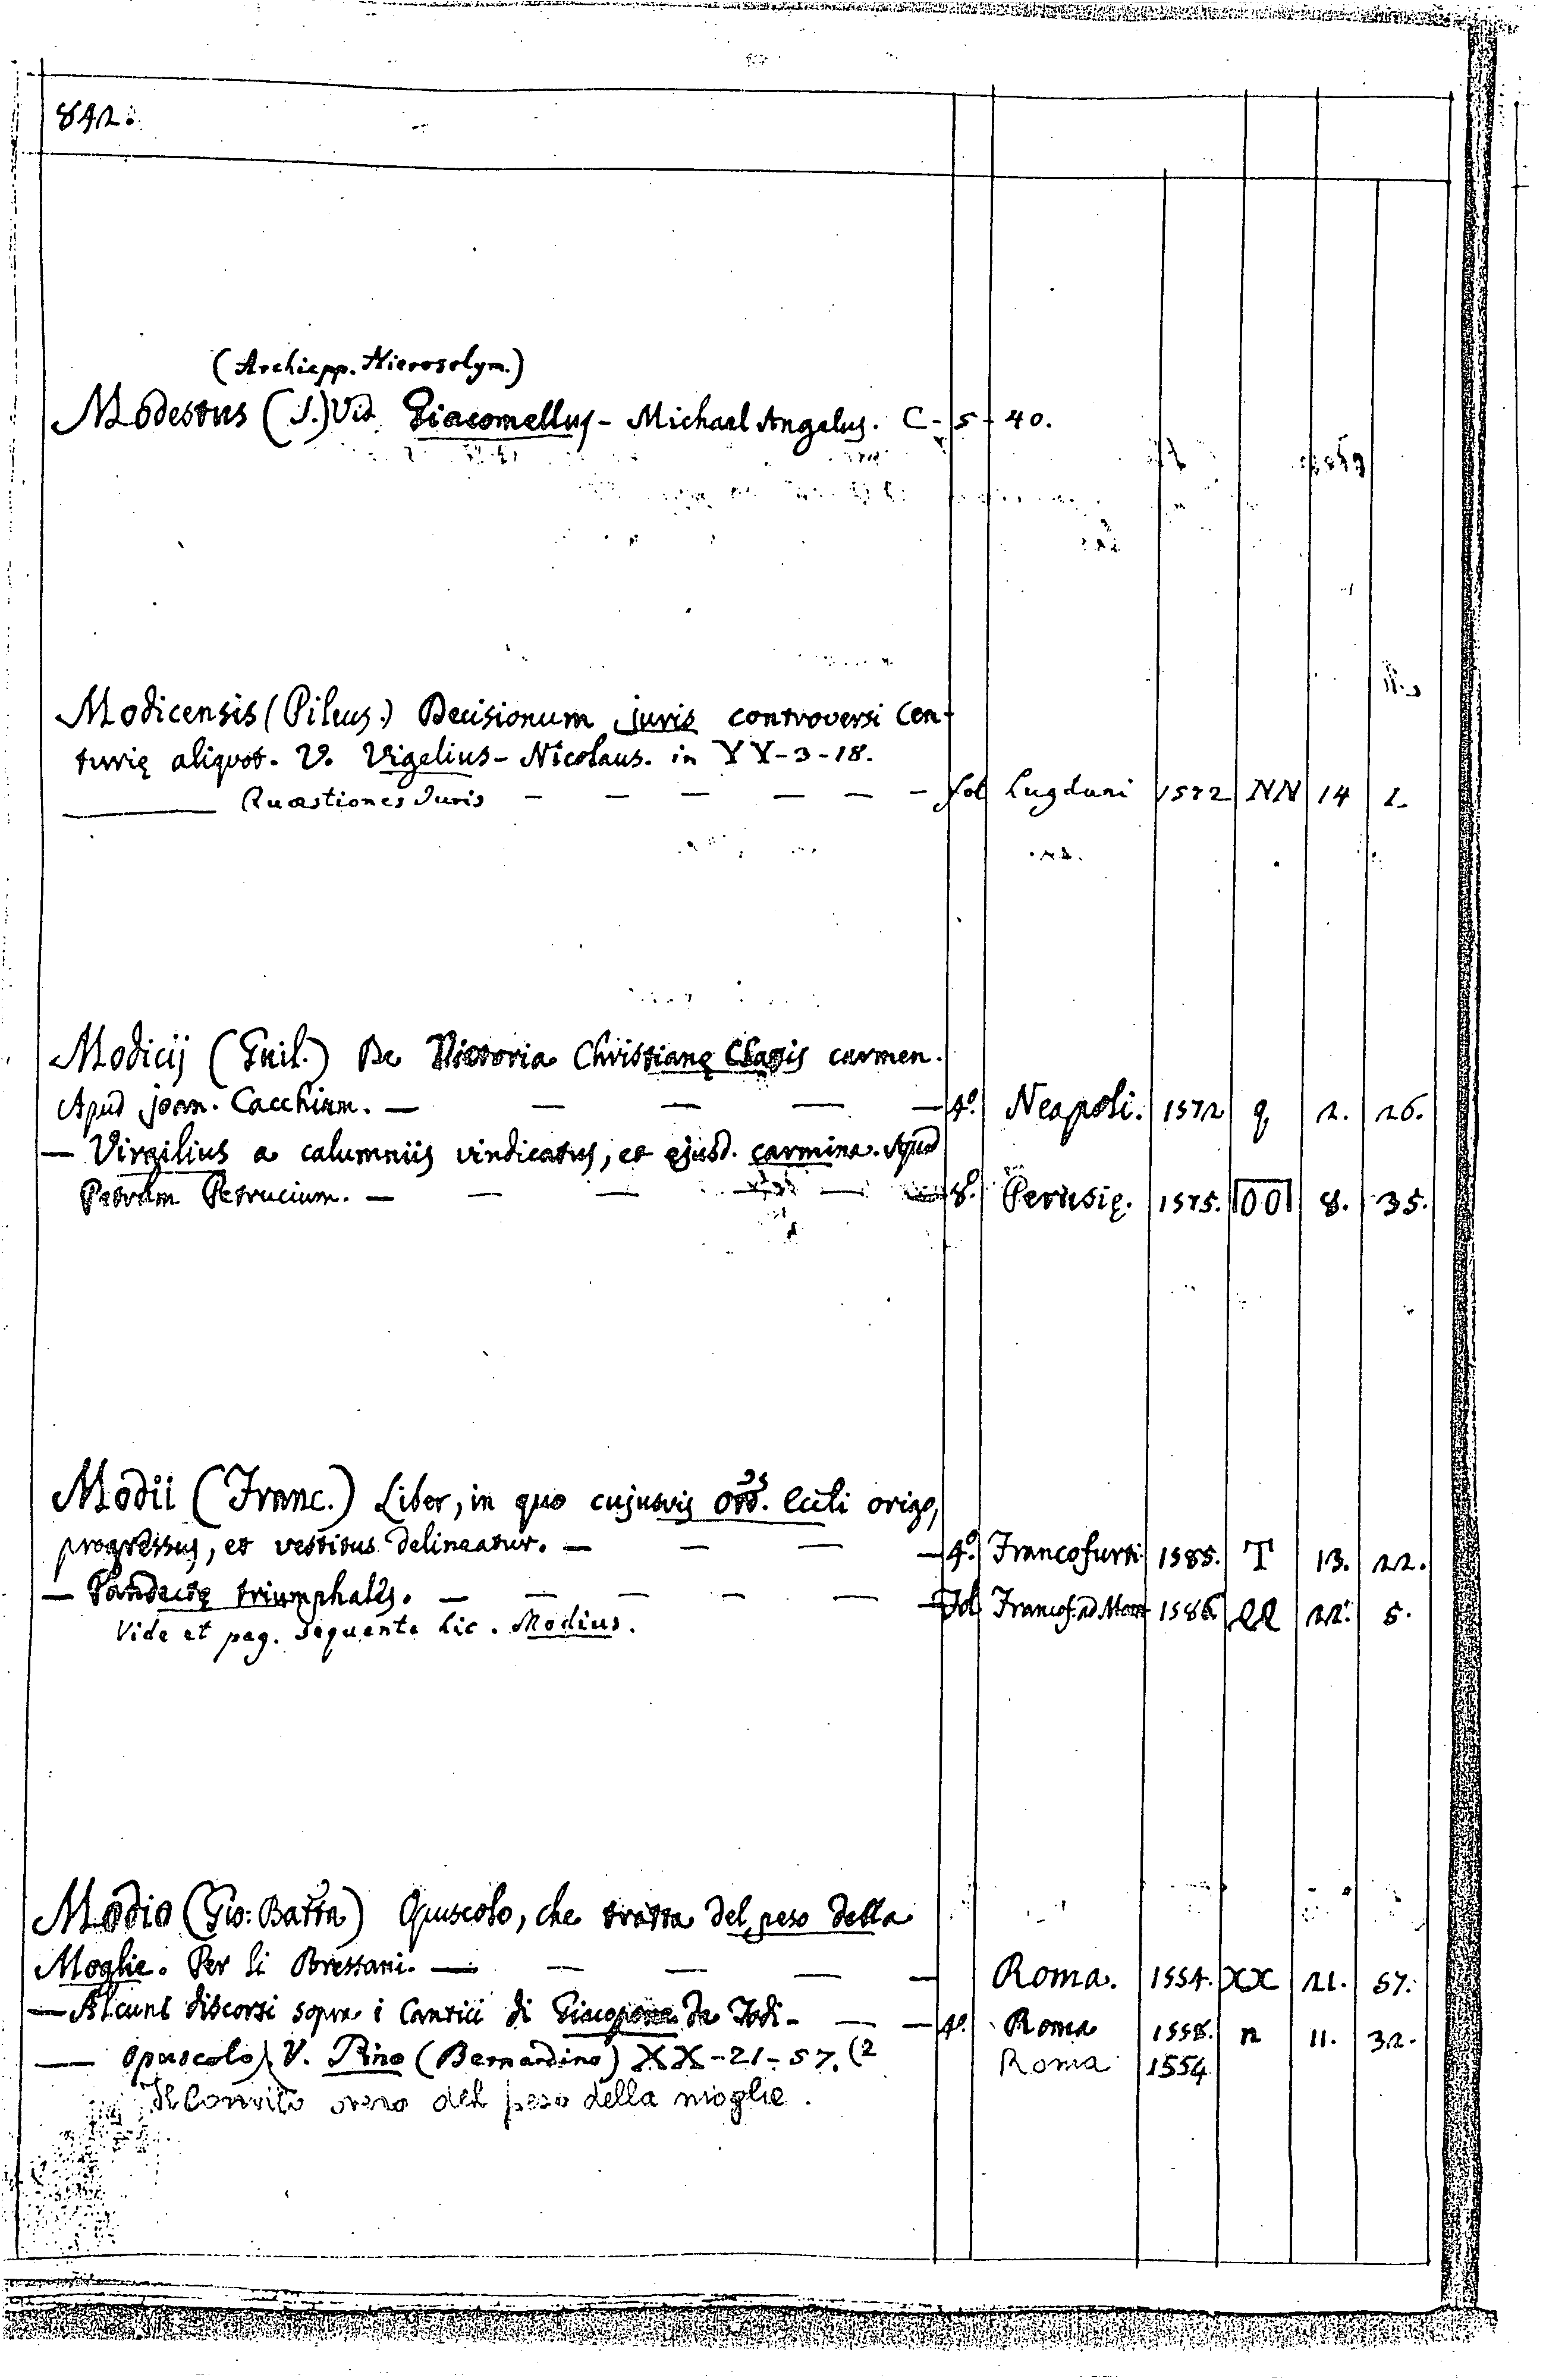 842.
(Archiepp. Hierosolym.)
Modestus (S.) Vid. Giacomellus - Michael Angelus. C - 5 - 40.
Modicensis (Pileus.) Decisionum juris controversi Cen-
turię aliquot. V. Vigelius - Nicolaus. in YY-3-18.
——— Quæstiones Juris — — — — — — fol Lugduni 1572 NN 14 1.
Modicij (Guil.) De Victoria Christianę Classis carmen.
Apud Joan. Cacchium. — — — — — 4º. Neapoli. 1572 q 2. 26.
— Virgilius a calumniis vindicatus, et ejusd. carmina. Apud
Petrum Petrucium. — — — — — 8º. Perusię. 1575. OO 8. 35.
Modii (Franc.) Liber, in quo cujusvis Ord. Eccli origo,
progressus, et vestitus delineatur. — — — — 4º. Francofurti 1585. T 13. 22.
— Pandectę triumphales. — — — — — Fol Francof. ad Moen 1586. QQ 22. 5.
Vide et pag. sequente lic. Modius.
Modio (Gio: Batta) Opuscolo, che tratta del peso della
Moglie. Per li Bressani. — — — — — Roma. 1554. XX 21. 57.
— Alcuni discorsi sopra i Cantici di Giacopone da Todi - — — 4º. Roma 1558. n 11. 32.
— Opuscolo) V. Pino (Bernardino) XX-21-57. (2 Roma 1554
Il Convito overo del peso della moglie.